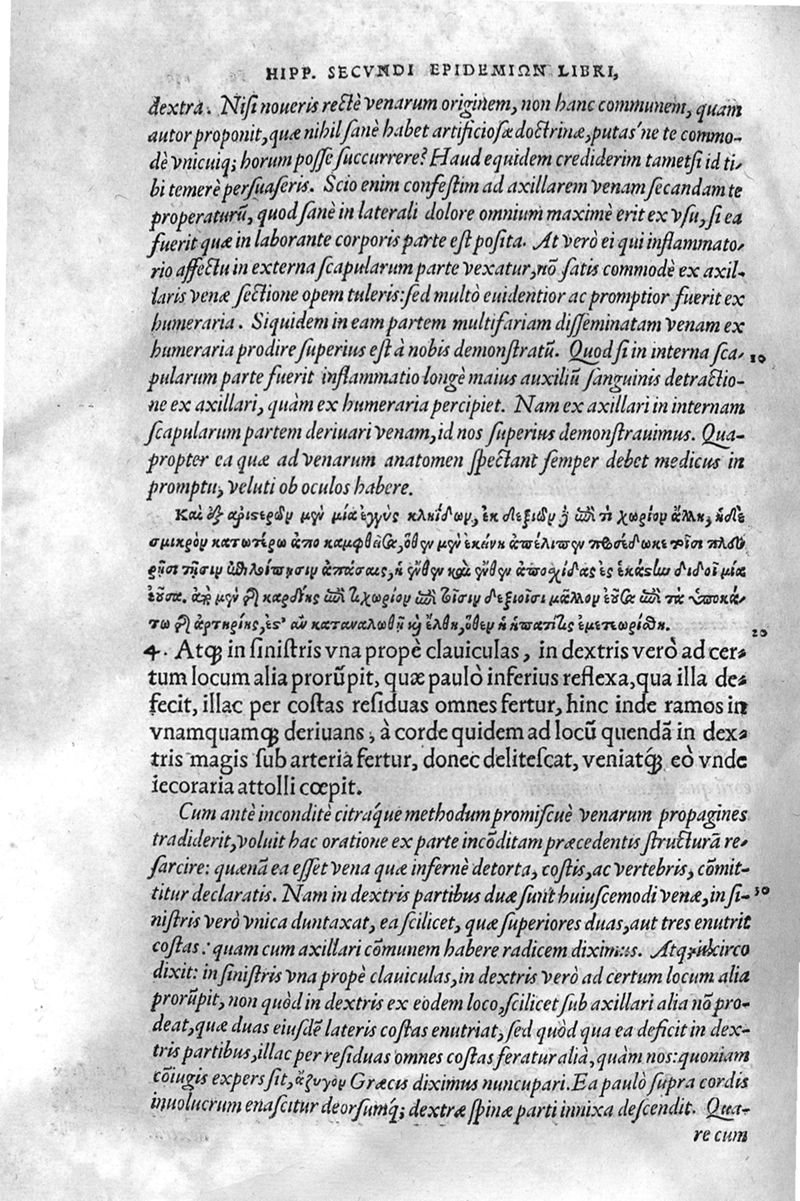 HIPP. SECVNDI EPIDEMIΩN LIBRI,
dextra. Niſi noueris rectè venarum originem, non hanc communem, quam
autor propónit, quæ nihil ſanè habet artificioſæ doctrinæ, putas'ne te commo-
dè vnicuiq; horum poſſe ſuccurrere? Haud equidem crediderim tametſi id ti-
bi temerè perſuaſeris. Scio enim confeſtim ad axillarem venam ſecandam te
properaturũ, quod ſanè in laterali dolore omnium maximè erit ex vſu, ſi ea
fuerit quæ in laborante corporis parte eſt poſita. At verò ei qui inflammato-
rio affectu in externa ſcapularum parte vexatur, nõ ſatis commodè ex axil-
laris venæ ſectione opem tuleris: ſed multò euidentior ac promptior fuerit ex
humeraria. Siquidem in eam partem multifariam diſſeminatam venam ex
humeraria prodire ſuperius eſt à nobis demonſtratũ. Quod ſi in interna ſca- 10
pularum parte fuerit inflammatio longè maius auxiliũ ſanguinis detractio-
ne ex axillari, quàm ex humeraria percipiet. Nam ex axillari in internam
ſcapularum partem deriuari venam, id nos ſuperius demonſtrauimus. Qua-
propter ea quæ ad venarum anatomen ſpectant ſemper debet medicus in
promptu, veluti ob oculos habere.
Καὶ ἐξ ἀριϛερῶν μὲν μία ἐγγὺς κληίδων, ἐκ δεξιῶν δὲ ἐπὶ τὶ χωρίον ἄλλη, ἡ δὲ
σμικρὸν κατωτέρω ἀπο καμφθεῖσα, ὅθεν μὲν ἐκείνη ἀπέλιπεν προσέδωκε τῇσι πλευ
ρῇσι τῇσιν ἐπιλοίπῃσιν ἁπάσαις, ἡ ἔνθεν καὶ ἔνθεν ἀποσχίδας ἐς ἑκάστην διδοῖ μία
ἐοῦσα. ἀπὸ μὲν τῆς καρδίης ἐπὶ τὶ χωρίον ἐπὶ τοῖσιν δεξιοῖσι μᾶλλον ἐοῦσα ἐπὶ τὰ ὑποκά-
τω τῆς ἀρτηρίης, ἐϛ' ἂν καταναλωθῇ καὶ ἔλθη, ὅθεν ἡ ἡπατῖτις ἐμετεωρίσθη. 20
4. Atq; in ſiniſtris vna propè clauiculas, in dextris verò ad cer-
tum locum alia prorũpit, quæ paulò inferius reflexa, qua illa de-
fecit, illac per coſtas reſiduas omnes fertur, hinc inde ramos in
vnamquamq; deriuans, à corde quidem ad locũ quendã in dex-
tris magis ſub arteria fertur, donec deliteſcat, veniatq́; eò vnde
iecoraria attolli cœpit.
Cum antè inconditè citráque methodum promiſcuè venarum propagines
tradiderit, voluit hac oratione ex parte incõditam præcedentis ſtructurã re-
ſarcire: quænã ea eſſet vena quæ infernè detorta, coſtis, ac vertebris, cõmit-
titur declaratis. Nam in dextris partibus duæ ſunt huiuſcemodi venæ, in ſi- 30
niſtris verò vnica duntaxat, ea ſcilicet, quæ ſuperiores duas, aut tres enutrit
coſtas: quam cum axillari cõmunem habere radicem diximus. Atq; idcirco
dixit: in ſiniſtris vna propè clauiculas, in dextris verò ad certum locum alia
prorũpit, non quòd in dextris ex eodem loco, ſcilicet ſub axillari alia nõ pro-
deat, quæ duas eiuſdẽ lateris coſtas enutriat, ſed quòd qua ea deficit in dex-
tris partibus, illac per reſiduas omnes coſtas feratur alià, quàm nos: quoniam
cõiugis expers ſit, ἄζυγον Græcus diximus nuncupari. Ea paulò ſupra cordis
inuolucrum enaſcitur deorſumq́; dextræ ſpinæ parti innixa deſcendit. Qua-
re cum